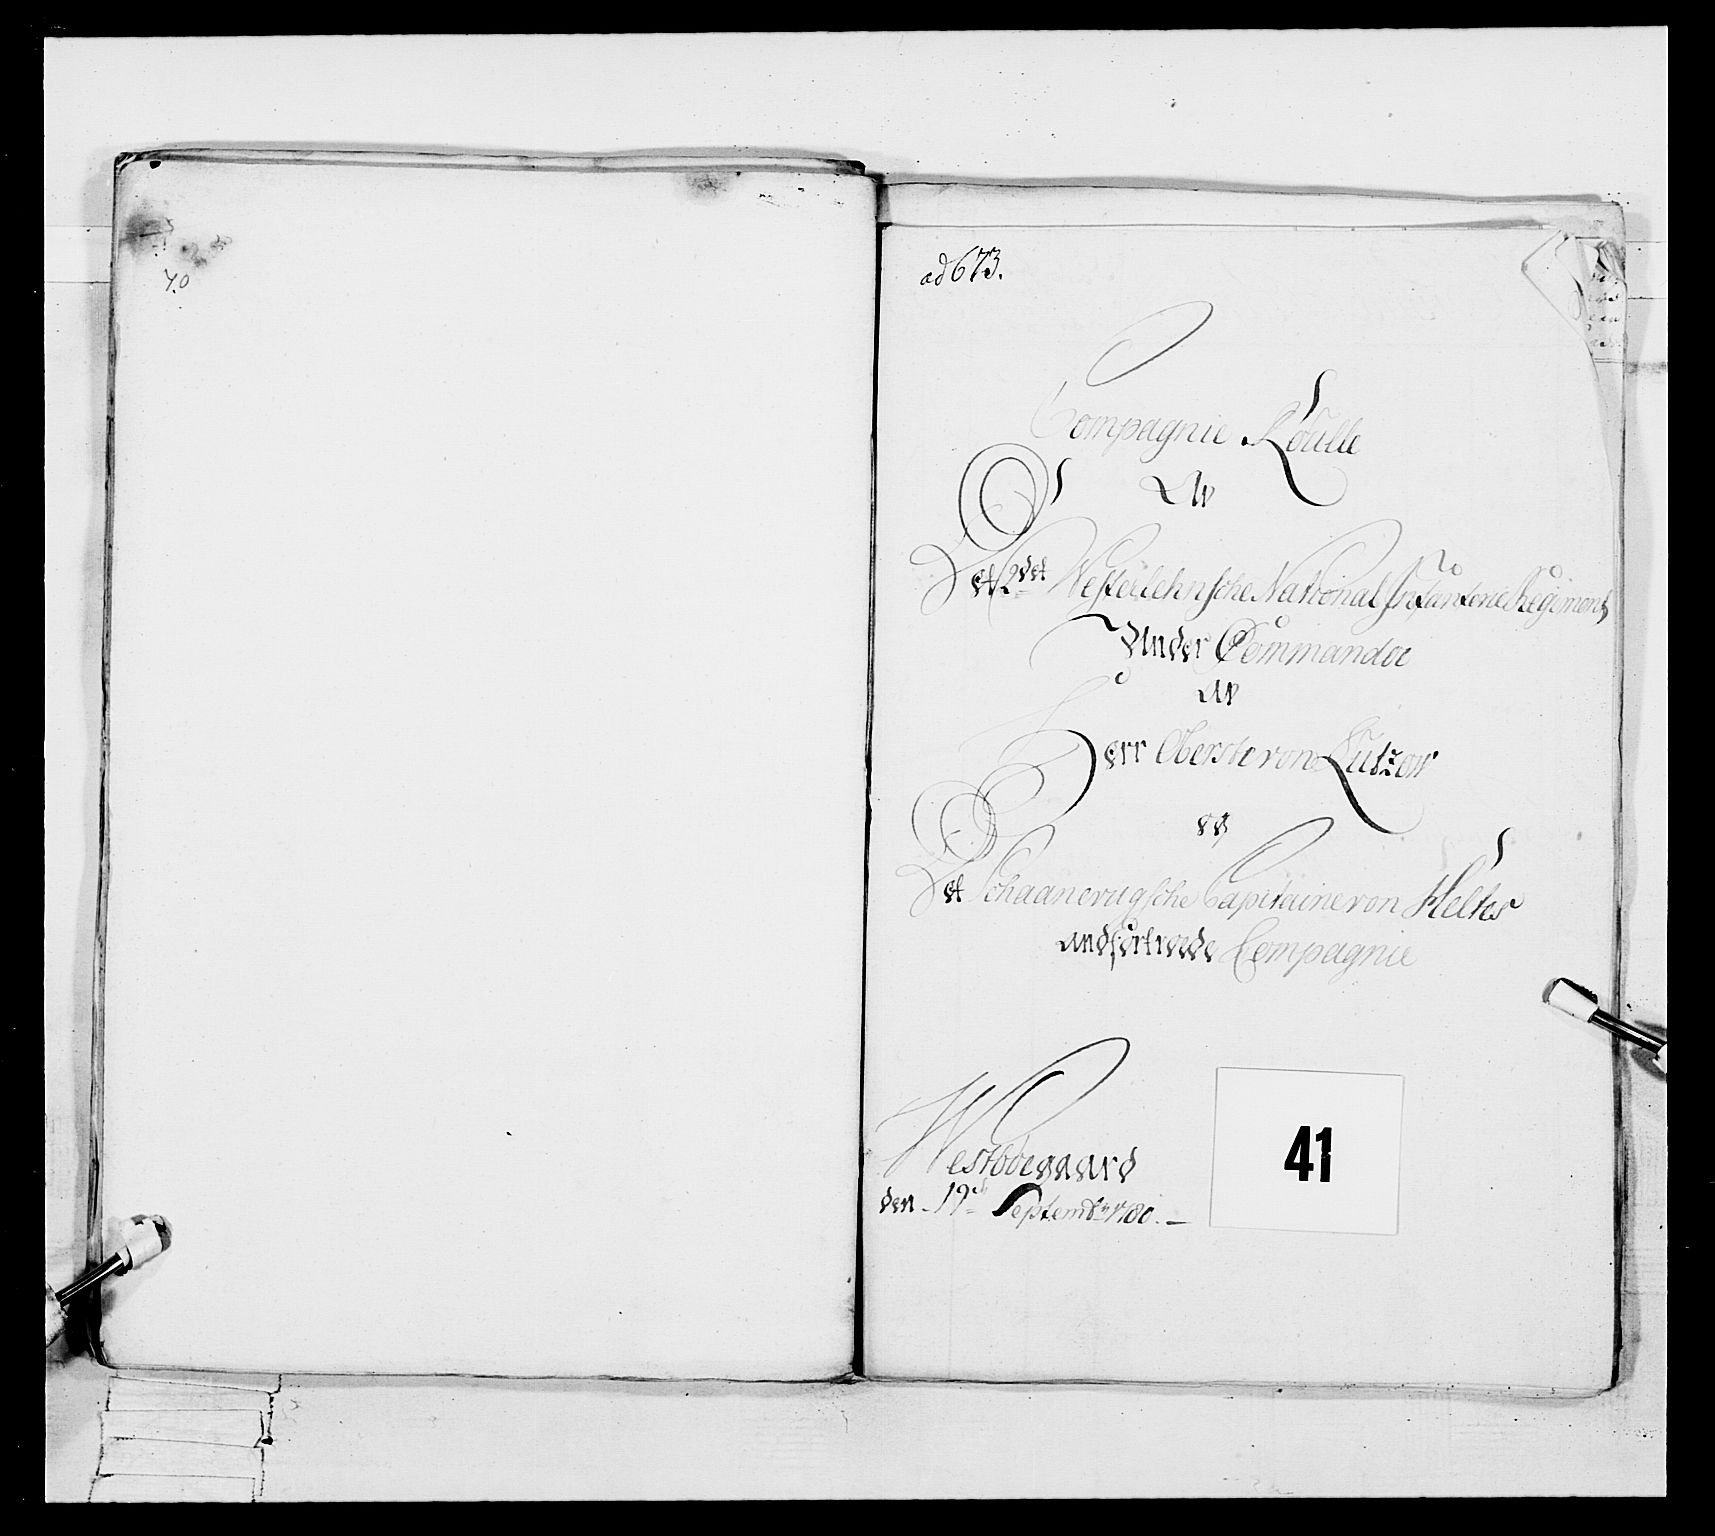 70
ad 673.
Compagnie Roulle
Av
Det 2det Westerlehnsche National Infanterie Regiment
Under Commando
av
Herr Oberste von Lützow
og
Det Schaanevugsche Capitaine von Heltes
andfortroede Compagnie
Westbøegaard
den 19de Septembr 1780. —
41